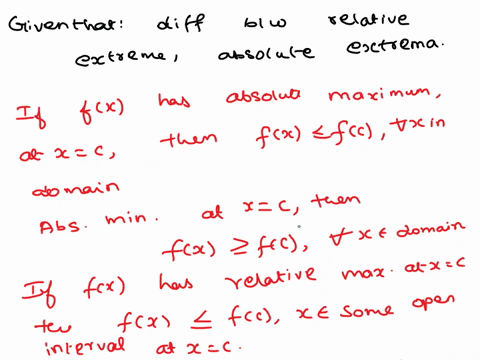 Giventhat: diff b/w relative
extreme, absolute extrema.
If f(x) has absolute maximum,
at x = c, then f(x) ≤ f(c), ∀ x in
domain
Abs. min. at x = c, then
f(x) ≥ f(c), ∀ x ∈ domain
If f(x) has relative max. at x = c
the f(x) ≤ f(c), x ∈ some open
interval at x = c.